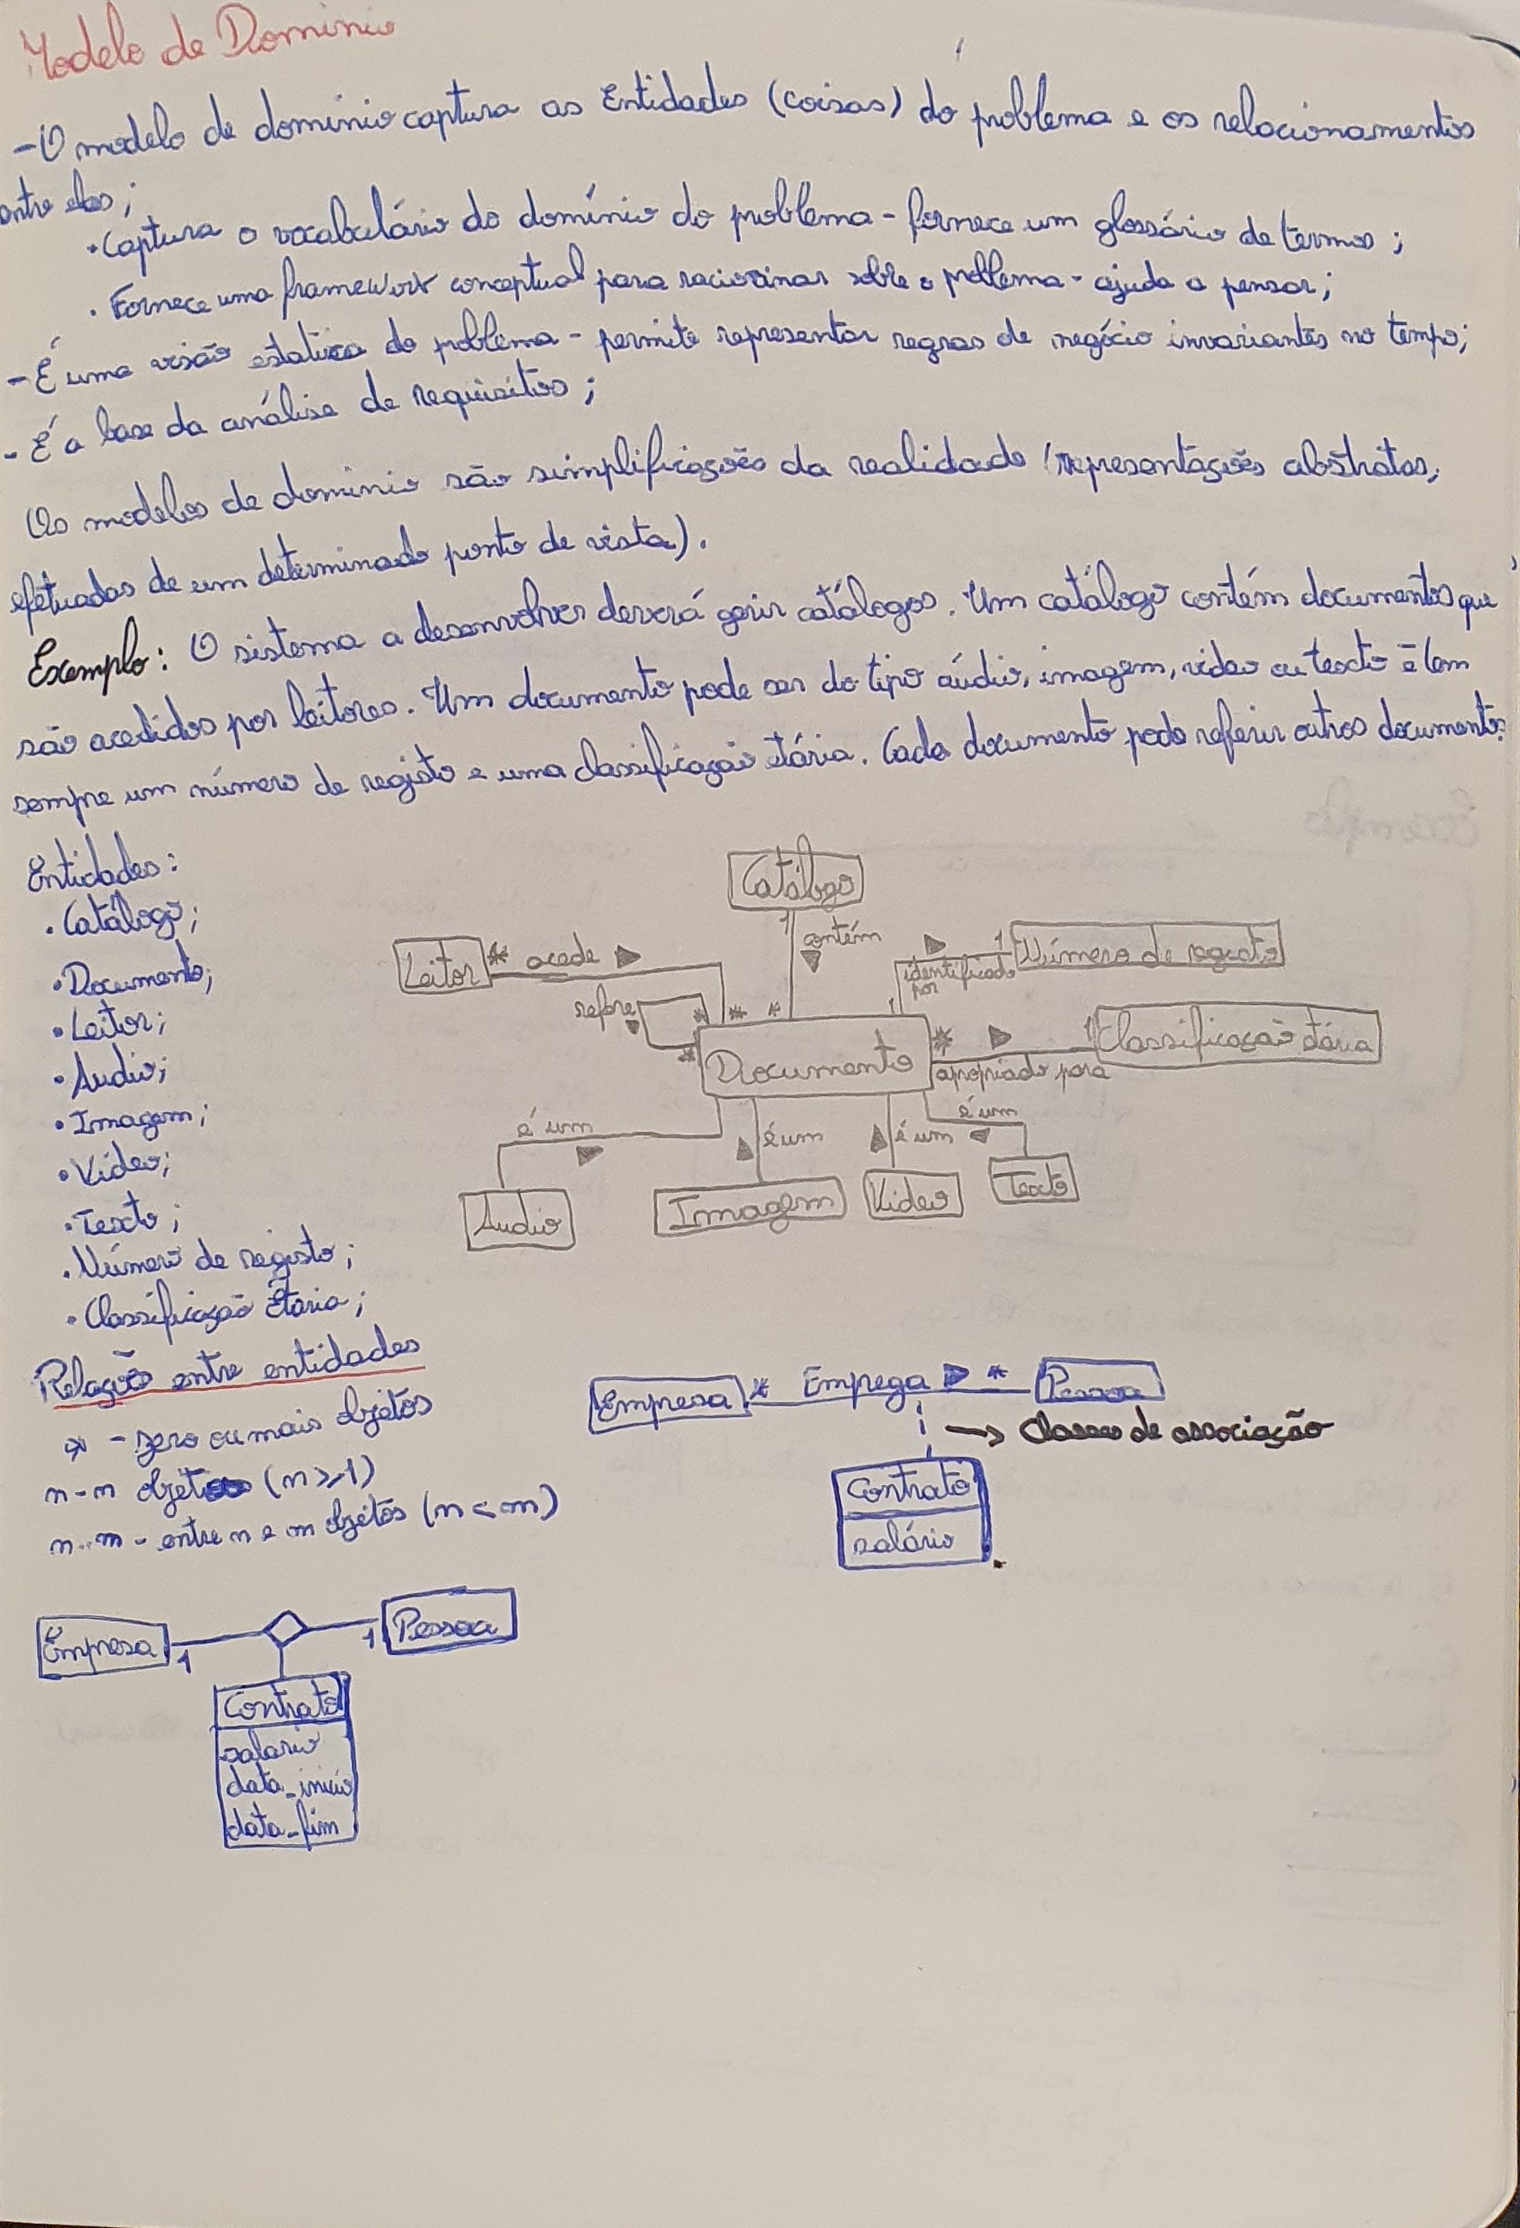 Modelo de Dominio
- O modelo de dominio captura as Entidades (coisas) do problema e os relacionamentos
entre elas;
· Captura o vocabulário do domínio do problema - fornece um glossário de termos;
· Fornece uma framework conceptual para raciocinar sobre o problema - ajuda a pensar;
- É uma visão estatica do problema - permite representar regras de negócio invariantes no tempo;
- É a base da análise de requisitos;
Os modelos de dominio são simplificações da realidade (representações abstratas,
efetuadas de um determinado ponto de vista).
Exemplo: O sistema a desenvolver deverá gerir catálogos. Um catálogo contém documentos que
são acedidos por leitores. Um documento pode ser do tipo áudio, imagem, video ou texto e tem
sempre um número de registo e uma classificação etária. Cada documento pode referir outros documentos.
Entidades:
· Catálogo;
· Documento;
· Leitor;
· Audio;
· Imagem;
· Vídeo;
· Texto;
· Número de registo;
· Classificação Etária;
Catálogo
1 contém
Leitor * acede
identificado por
1 Número de registo
refere
* * * * 1
Documento
* apropriado para 1 Classificação etária
é um
é um
é um
é um
Audio
Imagem
Video
Texto
Relações entre entidades
* - zero ou mais objetos
n - n objetos (n>1)
n..m - entre n e m objetos (n<m)
Empresa * Emprega * Pessoa
→ Classes de associação
Contrato
salário
Empresa 1
1 Pessoa
Contrato
salario
data_inicio
data_fim
Exemplo